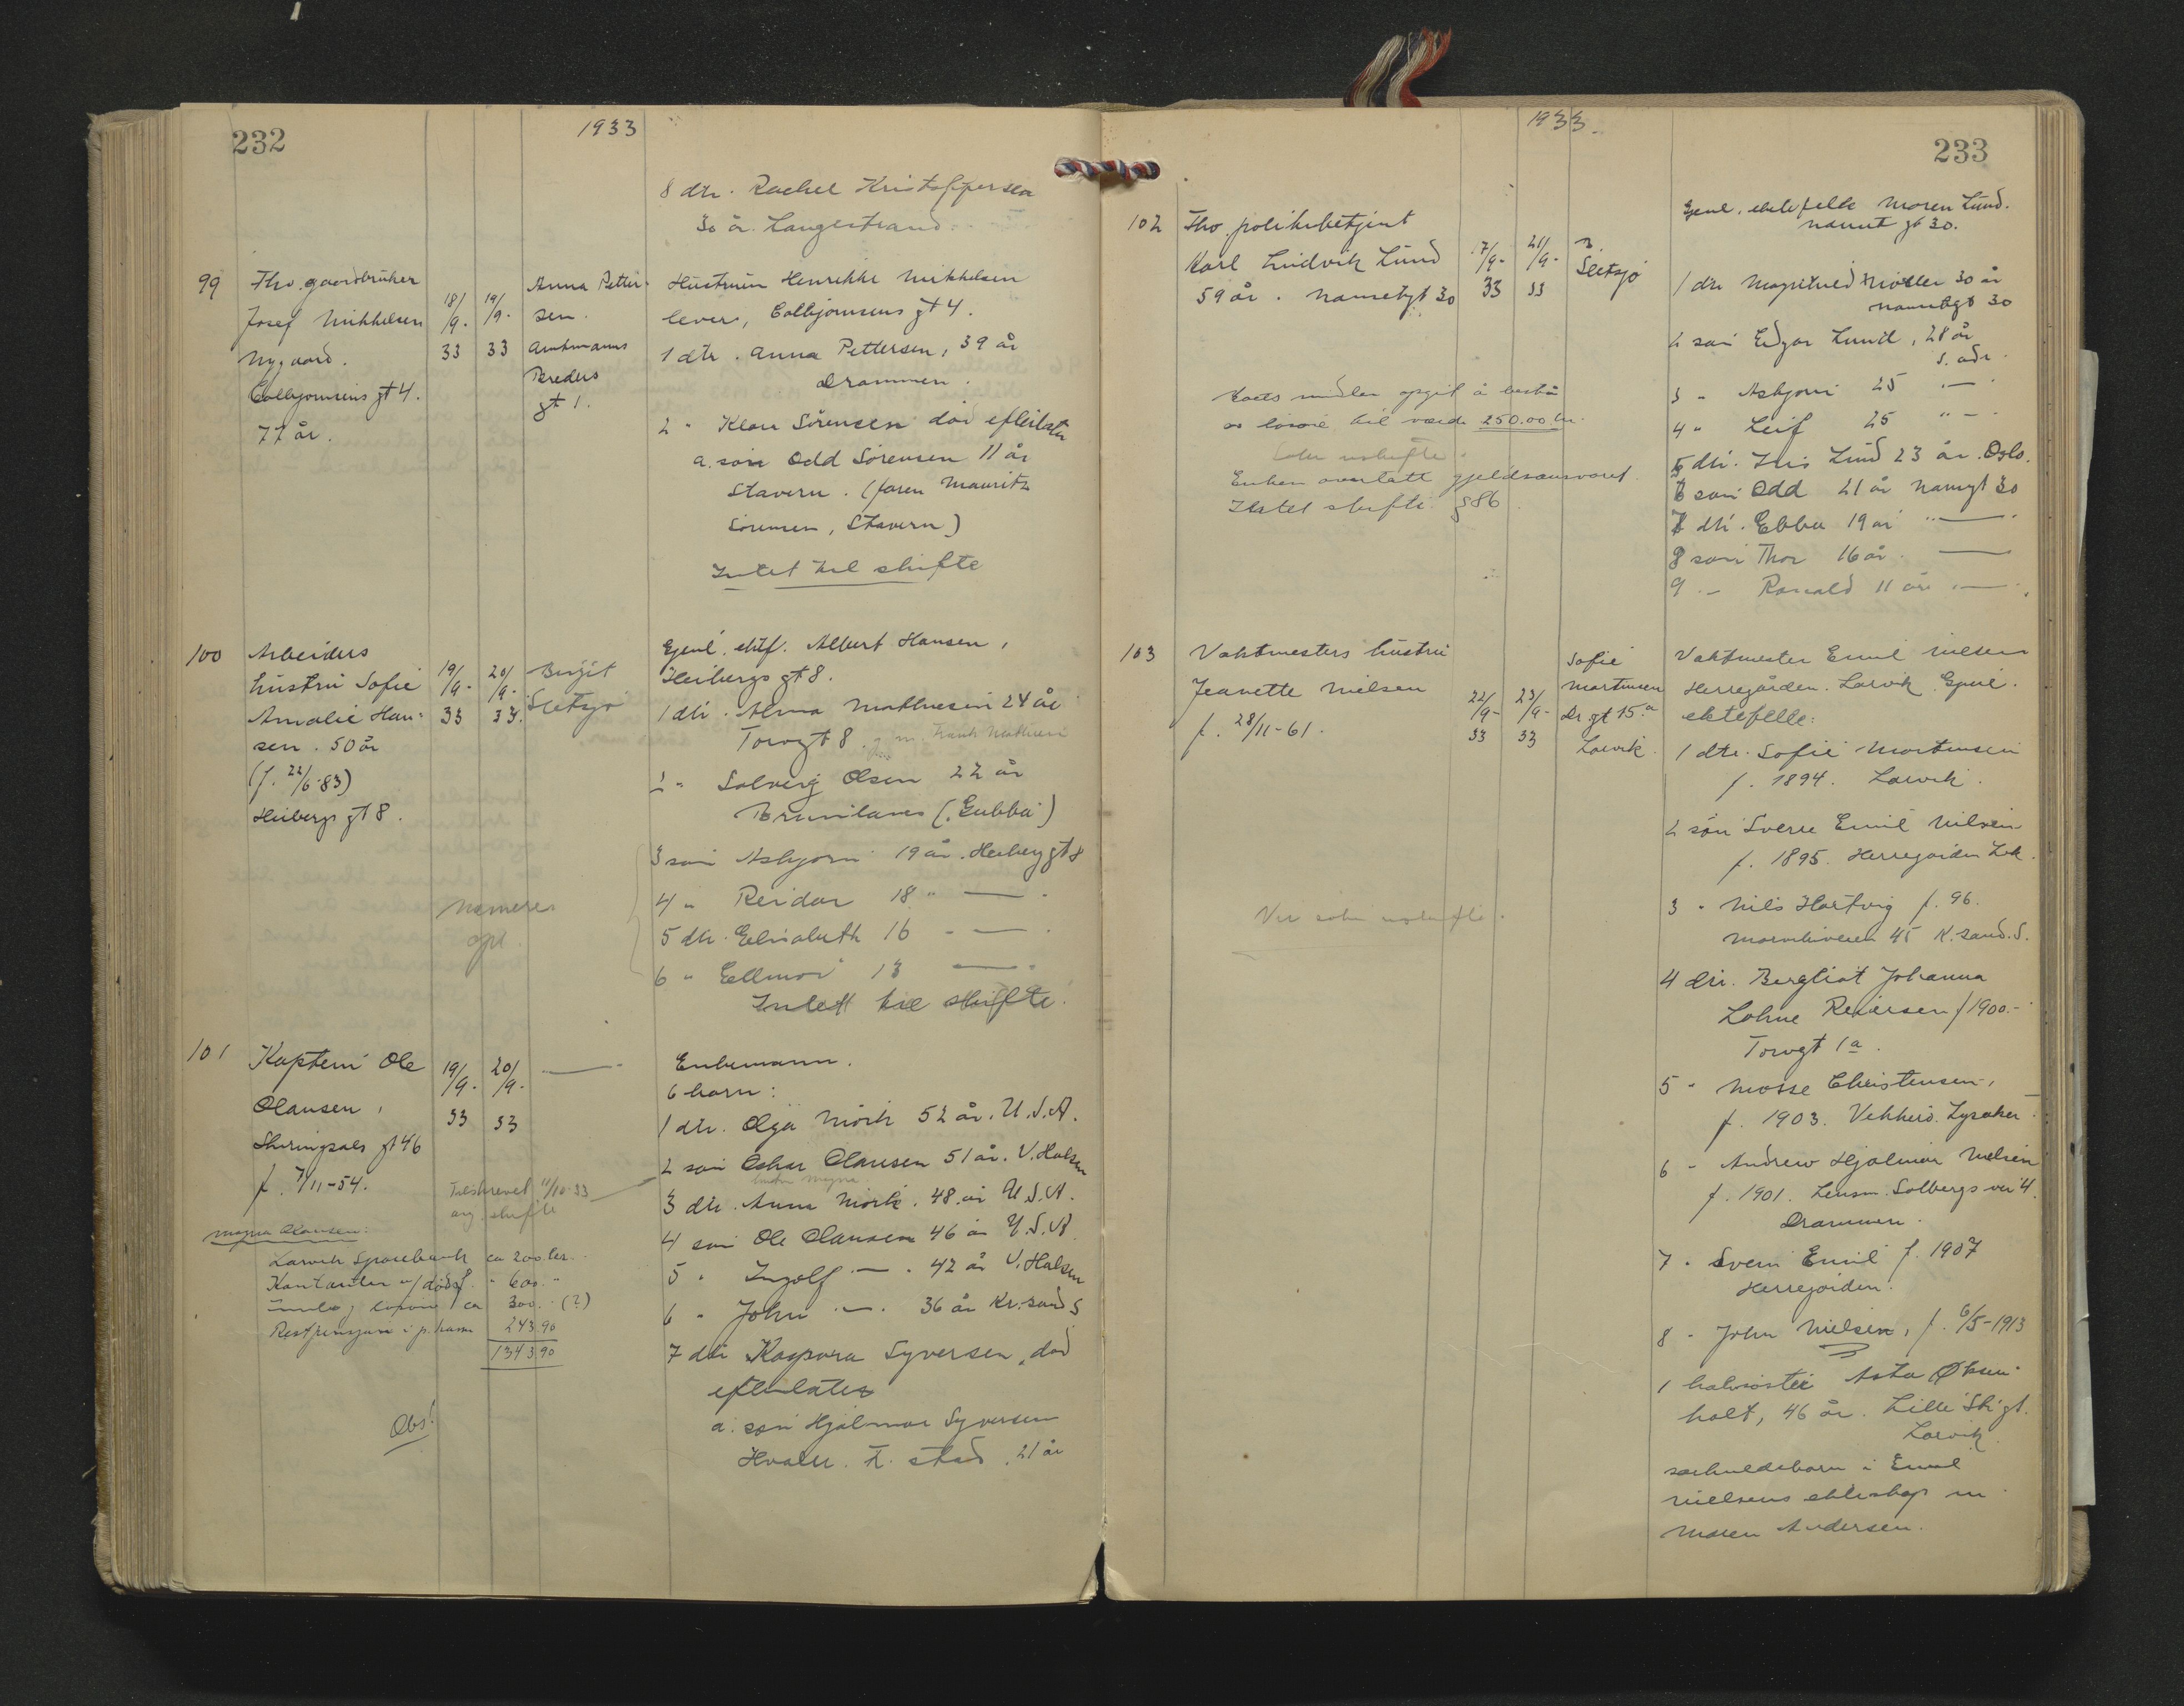 232
1933
8 dtr. Rachel Kristoffersen
30 år. Langestrand
99
Fhv. gaardbruker
Josef Mikkelsen
Nygaard.
Colbjørnsens gt 4.
77 år.
18/9-33
19/9-33
Anna Petter-
sen.
Amtmanns
Breders
gt 1.
Hustruen Henrikke Mikkelsen
lever, Colbjørnsens gt 4.
1 dtr. Anna Pettersen, 39 år
Drammen.
2 " Klara Sørensen død efterlater
a. søn Odd Sørensen 11 år
Stavern. (faren Mauritz
Sørensen, Stavern)
Intet til skifte
100
Arbeiders
hustru Sofie
Amalie Han-
sen. 50 år
(f. 22/6-83)
Heibergs gt 8.
19/9-33
20/9-33.
Birgit
Sletsjø
Gjenl. ektf. Albert Hansen,
Heibergs gt 8.
1 dtr. Alma Mathiesen 24 år
Torvgt 8. g. m. Frank Mathisen
2 " Solveig Olsen 22 år
Brunlanes (Gubba)
3 søn Asbjørn 19 år. Heiberg gt 8
4 " Reidar 18 " — .
5 dtr. Elisabeth 16 - — .
6 " Ellinor 13 — .
Intet til skifte.
101
Kaptein Ole
Olausen,
Skiringsals gt 46
f. 7/11-54.
19/9-33
20/9-33
—
Tilskrevet 11/10-33
ang. skifte
Magna Olausen:
Larvik Sparebank ca 200 kr.
Kontanter v/ dødsf. " 600. "
innbo, løsøre ca 300. - (?)
Restpensjon i p. kasse 243 90
1343 90
Obs!
Enkemann.
6 barn:
1 dtr. Olga Mörk 52 år. U.S.A.
2 søn Oskar Olausen 51 år. V. Halsen
3 dtr. Anna Mörk. 48 år U.S.A.
4 søn Ole Olausen 46 år U.S.A.
5 " Ingolf — . 42 år V. Halsen
6 " John — . 36 år Kr. sand S
7 dtr Kaspara Syversen, død
efterlater
a. søn Hjalmar Syversen
Hvaler. F. stad. 21 år
1933.
233
102
Fhv. politibetjent
Karl Ludvik Lund
59 år. Nansetgt 30
17/9-33
21/9-33
B.
Sletsjø
Gjenl. ektefelle Maren Lund.
Nanset gt 30.
1 dtr Magnhild Möller 30 år
Nansetgt 30
2 søn Edgar Lund, 28 år
s. adr.
3 " Asbjørn 25 " —
4 " Leif 25 " — "
5 dtr. Iris Lund 23 år. Oslo.
6 søn Odd 21 år Nansgt 30
7 dtr. Ebba 19 år " —
8 søn Thor 16 år. —
9 " Ronald 11 år. — .
Boets midler opgit å bestå
av løsøre til værdi 250.00 kr.
Enken overtatt gjeldsansvaret
Intet skifte. § 86
103
Vaktmesters hustru
Jeanette Nielsen
f. 28/11-61.
22/9-33
23/9-33
Sofie
Martinsen
Dr. gt 15 a
Larvik.
Vil sitte i uskifte.
Vaktmester Emil Nielsen
Herregården. Larvik. Gjenl.
ektefelle:
1 dtr. Sofie Martinsen
f. 1894. Larvik.
2 søn Sverre Emil Nilsen
f. 1895. Herregården Lvk.
3 " Nils Hartvig f. 96.
45 K. sand. S.
4 dtr. Bergliot Johanna
Lohne Reiersen f 1900.-
Torvgt 1 a.
5 " Mosse Christensen,
f. 1903. Vækkerö. Lysaker.
6 - Andrew Hjalmar Nielsen
f. 1901. Lensm. Solbergs vei 4.
Drammen.
7 - Svein Emil f. 1907
Herregården.
8 - John Nielsen, f. 6/5-1913
1 halvsøster Asta Øksen-
holt, 46 år. Lille Sk. gt.
Larvik.
særkuldsbarn i Emil
Nielsens ekteskap m
Maren Andersen.